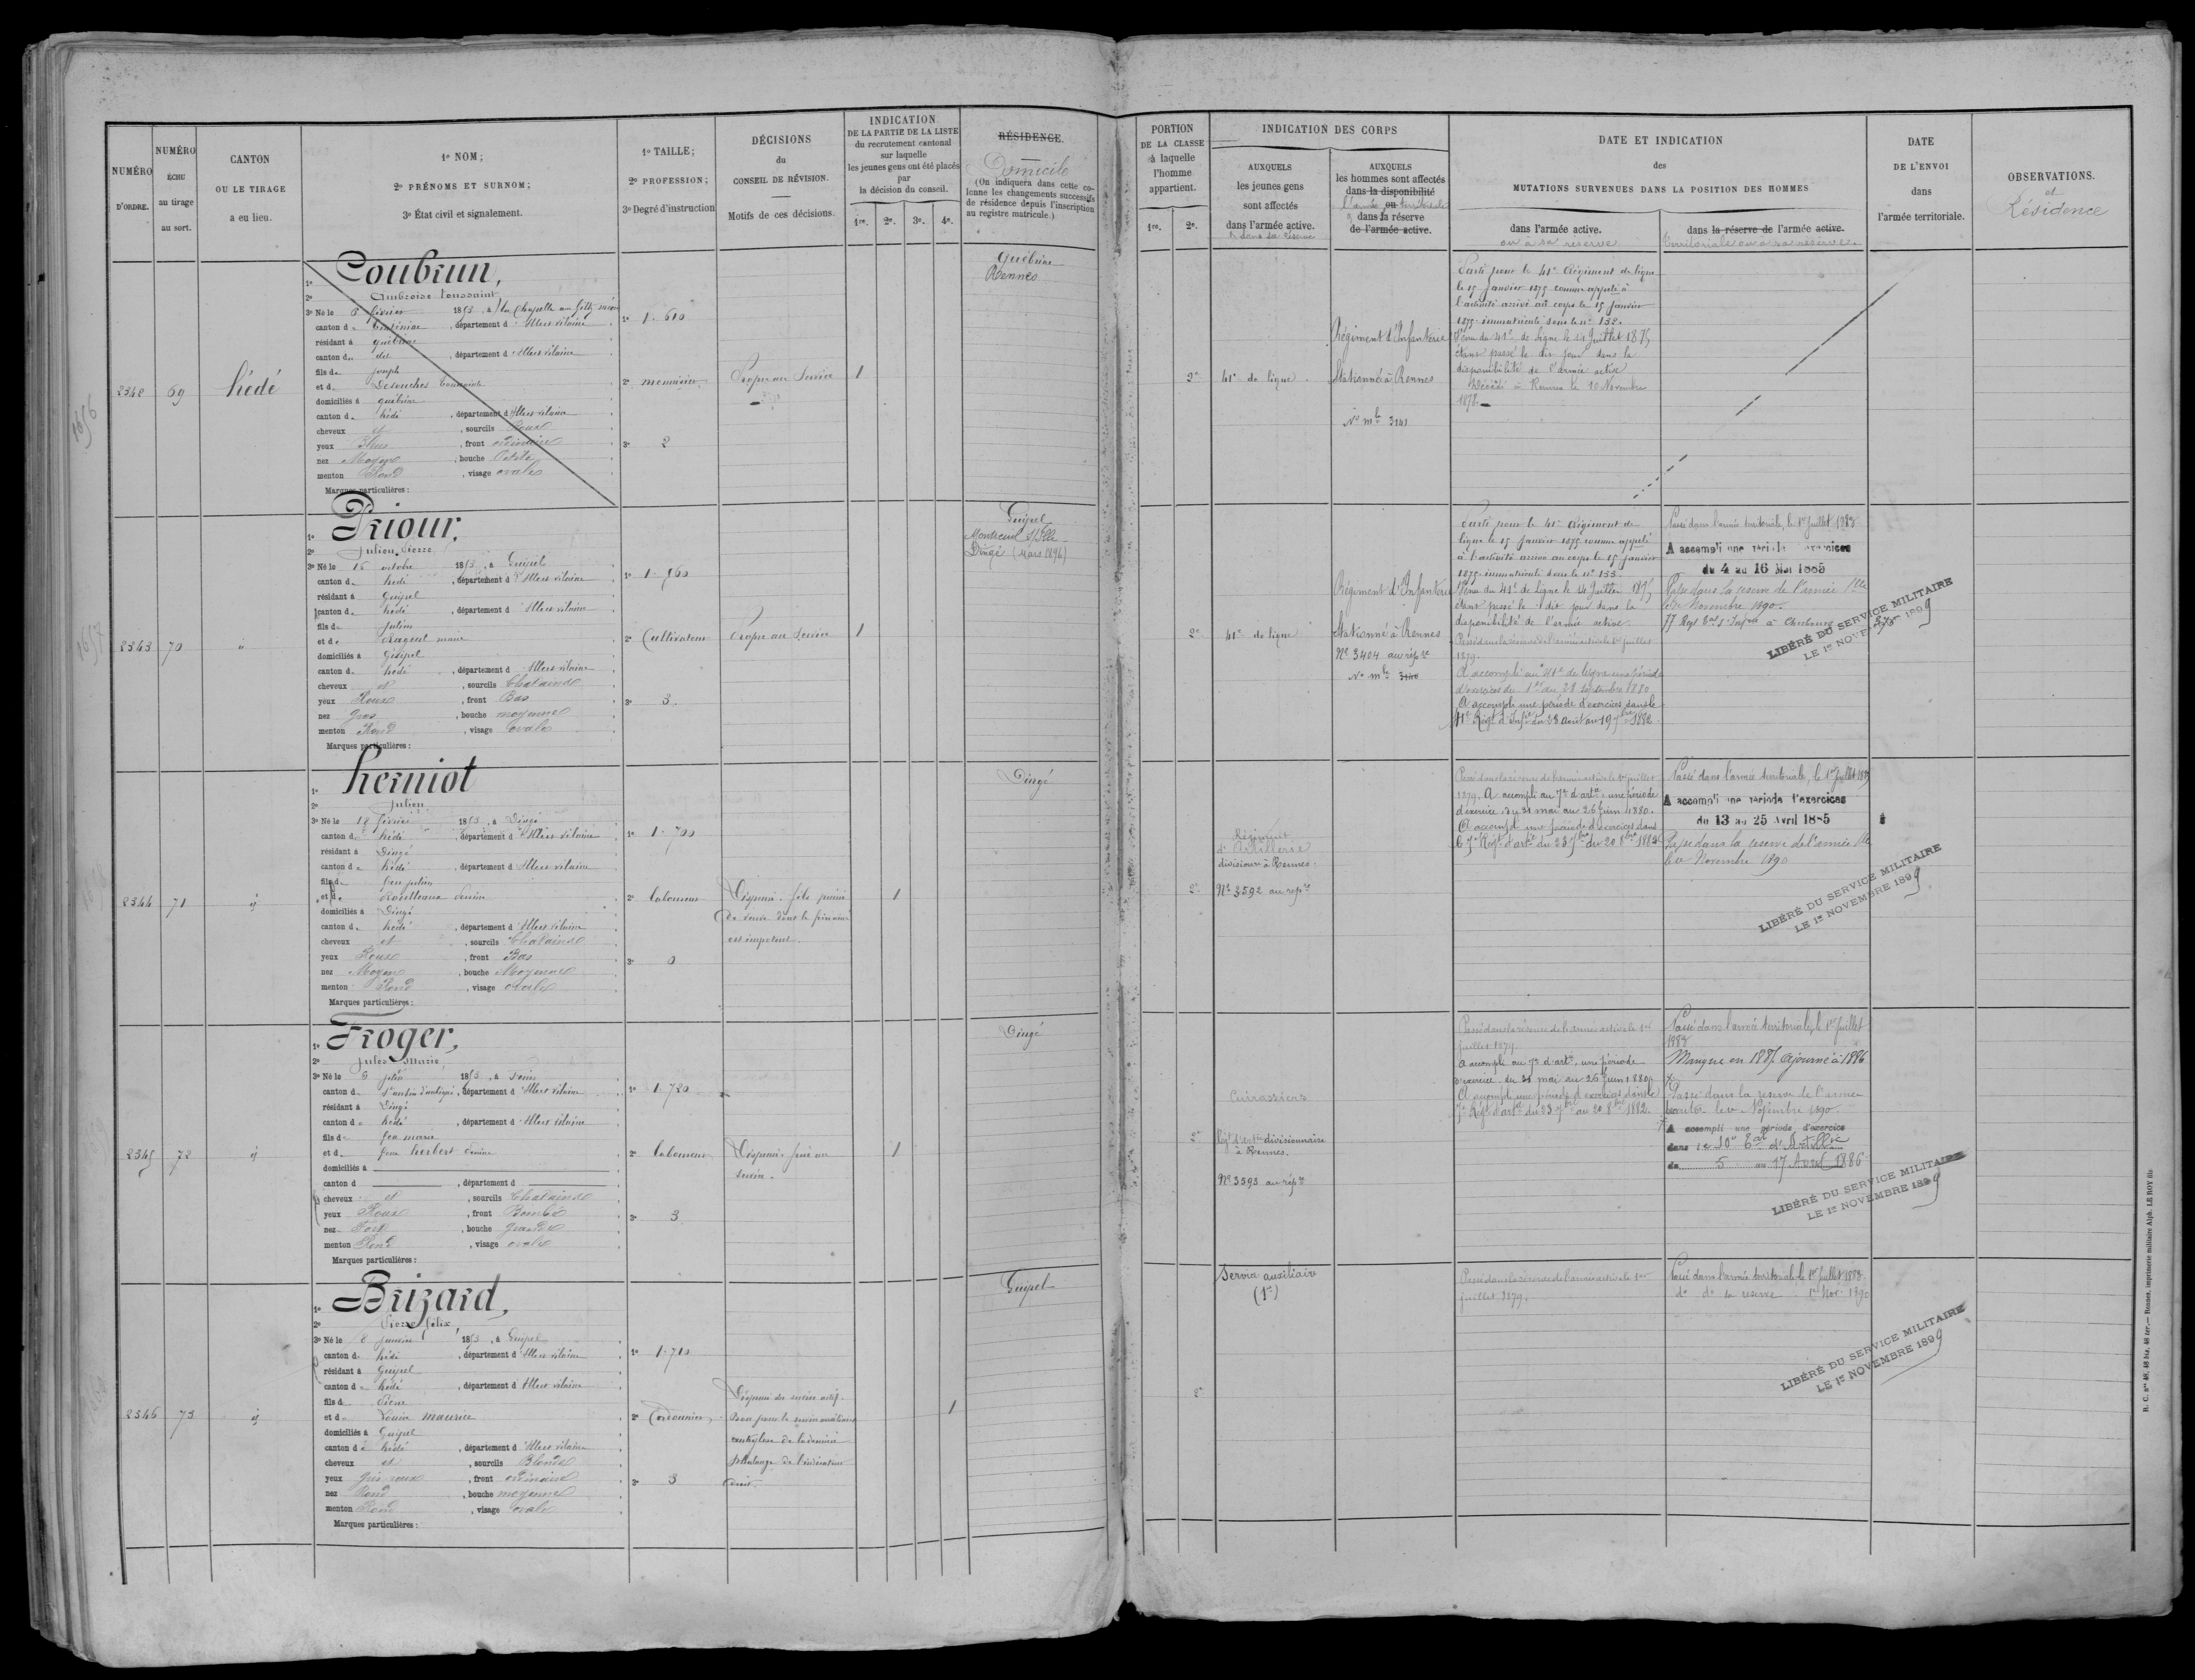 NUMÉRO
D'ORDRE.
NUMÉRO
ÉCHU
au tirage
au sort.
CANTON
OU LE TIRAGE
a eu lieu.
1º NOM;
2º PRÉNOMS ET SURNOM;
3º État civil et signalement.
1º TAILLE;
2º PROFESSION;
3º Degré d'instruction
DÉCISIONS
du
CONSEIL DE RÉVISION.
Motifs de ces décisions.
INDICATION
DE LA PARTIE DE LA LISTE
du recrutement cantonal
sur laquelle
les jeunes gens ont été placés
par
la décision du conseil.
1re. 2e. 3e. 4e.
RÉSIDENCE.
Domicile
(On indiquera dans cette co-
lonne les changements successifs
de résidence depuis l'inscription
au registre matricule.)
PORTION
DE LA CLASSE
à laquelle
l'homme
appartient.
1re. 2e.
INDICATION DES CORPS
AUXQUELS
les jeunes gens
sont affectés
dans l'armée active.
& dans sa réserve
AUXQUELS
les hommes sont affectés
dans la disponibilité
l'armée ou territoriale
dans la réserve
de l'armée active.
DATE ET INDICATION
des
MUTATIONS SURVENUES DANS LA POSITION DES HOMMES
dans l'armée active.
ou à sa réserve
dans la réserve de l'armée active.
territoriale ou à sa réserve.
DATE
DE L'ENVOI
dans
l'armée territoriale.
OBSERVATIONS.
et
Résidence
1656
2342
69
hédé
1º Coubrun,
2º Ambroise Toussaint
3º Né le 6 février 1853, à la Chapelle aux
canton de Tinténiac, département d'Ille et vilaine
résidant à québriac
canton de, département d'Ille et vilaine
fils de Joseph
et de
domiciliés à québriac
canton de hédé, département d'Ille et vilaine
cheveux et, sourcils Roux
yeux Bleus, front ordinaire
nez Moyen, bouche Petite
menton Rond, visage ovale
Marques particulières:
1º 1.610
2º menuisier
3º 2
Propre au Service
1
Québriac
Rennes
2e
41e de ligne.
Régiment d'Infanterie
Stationné à Rennes
No mle 3141
Parti pour le 41e Régiment de ligne
le 15 Janvier 1875 comme appelé à
l'activité arrivé au corps le 15 Janvier
1875. immatriculé sous le no 132.
Venu du 41e de Ligne le 14 Juillet 1875
étant passé le dit jour dans la
disponibilité de l'armée active
Décédé à Rennes le 10 Novembre
1878.
1657
2343
70
"
1º Priour,
2º Julien Pierre
3º Né le 16 octobre 1853, à Guipel
canton de hédé, département d'Ille et vilaine
résidant à Guipel
canton de hédé, département d'Ille et vilaine
fils de Julien
et de marie
domiciliés à Guipel
canton de hédé, département d'Ille et vilaine
cheveux et, sourcils Chatains
yeux Roux, front Bas
nez Gros, bouche moyenne
menton Rond, visage ovale
Marques particulières:
1º 1.560
2º Cultivateur
3º 3
Propre au Service
1
Guipel
Montreuil S/Ille
Dingé (Mars 1896)
2e
41e de ligne
Régiment d'Infanterie
Stationné à Rennes
No 3404 au répre
No mle 3140
Parti pour le 41e Régiment de
ligne le 15 Janvier 1875 comme appelé
à l'activité arrivé au corps le 15 janvier
1875. immatriculé sous le no 133.
Venu du 41e de Ligne le 14 Juillet 1875
étant passé le dit jour dans la
disponibilité de l'armée active.
Passé dans la réserve de l'armée active le 1er juillet
1879.
A accompli au 41e de ligne une période
d'exercices du 1er au 28 septembre 1880
A accompli une période d'exercices dans le
41e Régt d'Infie du 23 Août au 19 7bre 1882.
Passé dans l'armée territoriale, le 1er Juillet 1883
A accompli une période d'exercices
du 4 au 16 Mai 1885
Passé dans la réserve de l'armée Tle
le 1er Novembre 1890.
LIBÉRÉ DU SERVICE MILITAIRE
LE 1er NOVEMBRE 1899
2344
71
id
1º herniot
2º Julien
3º Né le 18 février 1853, à Dingé
canton de hédé, département d'Ille et vilaine
résidant à Dingé
canton de hédé, département d'Ille et vilaine
fils de feu julien
et de
domiciliés à Dingé
canton de hédé, département d'Ille et vilaine
cheveux et, sourcils Chatains
yeux Roux, front Bas
nez Moyen, bouche Moyenne
menton Rond, visage ovale
Marques particulières:
1º 1.700
2º laboureur
3º 0
Dispensé. fils puiné
de veuve dont le fils ainé
est impotent.
1
Dingé
2e
Régiment
d'Artillerie
divisionre à Rennes.
No 3592 au répre
Passé dans la réserve de l'armée active le 1er juillet
1879. A accompli au 7e d'artie une période
d'exercice du 31 mai au 26 Juin 1880.
A accompli une période d'exercices dans
le 7e Régt d'artie du 23 7bre au 20 8bre 1882
Passé dans l'armée territoriale, le 1er Juillet 1883
A accompli une période d'exercices
du 13 au 25 Avril 1885
Passé dans la réserve de l'armée Tle
le 1er Novembre 1890
LIBÉRÉ DU SERVICE MILITAIRE
LE 1er NOVEMBRE 1899
2345
72
id
1º Froger,
2º Jules Marie
3º Né le 8 1853, à
canton de St aubin d'aubigné, département d'Ille et vilaine
résidant à Dingé
canton de hédé, département d'Ille et vilaine
fils de feu
et de feue herbert
domiciliés à
canton d, département d
cheveux et, sourcils Chatains
yeux Roux, front Bombé
nez Fort, bouche Grande
menton Rond, visage ovale
Marques particulières:
1º 1.720
2º laboureur
3º 3
Dispensé. frère au
service.
1
Dingé
2e
Cuirassiers
Régt d'artie divisionnaire
à Rennes.
No 3593 au répre
Passé dans la réserve de l'armée active le 1er
Juillet 1879.
A accompli au 7e d'artie une période
d'exercice du 31 mai au 26 Juin 1880.
A accompli une période d'exercices dans le
7e Régt d'artie du 23 7bre au 20 8bre 1882.
Passé dans l'armée territoriale, le 1er Juillet
1883
Manque en 1885. Ajourné à 1886
Passé dans la réserve de l'armée
territle le 1er Novembre 1890.
A accompli une période d'exercice
dans le 10e Eon d'Artillerie
du 5 au 17 Avril 1886
LIBÉRÉ DU SERVICE MILITAIRE
LE 1er NOVEMBRE 1899
2346
73
id
1º Brizard,
2º Pierre félix
3º Né le 8 janvier 1853, à Guipel
canton de hédé, département d'Ille et vilaine
résidant à Guipel
canton de hédé, département d'Ille et vilaine
fils de Pierre
et de maurice
domiciliés à Guipel
canton de hédé, département d'Ille et vilaine
cheveux et, sourcils Blonds
yeux Gris roux, front ordinaire
nez Rond, bouche moyenne
menton Rond, visage ovale
Marques particulières:
1º 1.710
2º Cordonnier
3º 3
Dispensé du service actif.
Bon pour le service auxiliaire
ankylose de la dernière
phalange de l'indicateur
droit
1
Guipel
2e
Service auxiliaire
(1er)
Passé dans la réserve de l'armée active le 1er
juillet 1879.
Passé dans l'armée territoriale le 1er Juillet 1883.
do do sa réserve 1er Nov. 1890
LIBÉRÉ DU SERVICE MILITAIRE
LE 1er NOVEMBRE 1899
R. C. nos 48, 48 bis, 48 ter.— Rennes, imprimerie militaire Alph. LE ROY fils